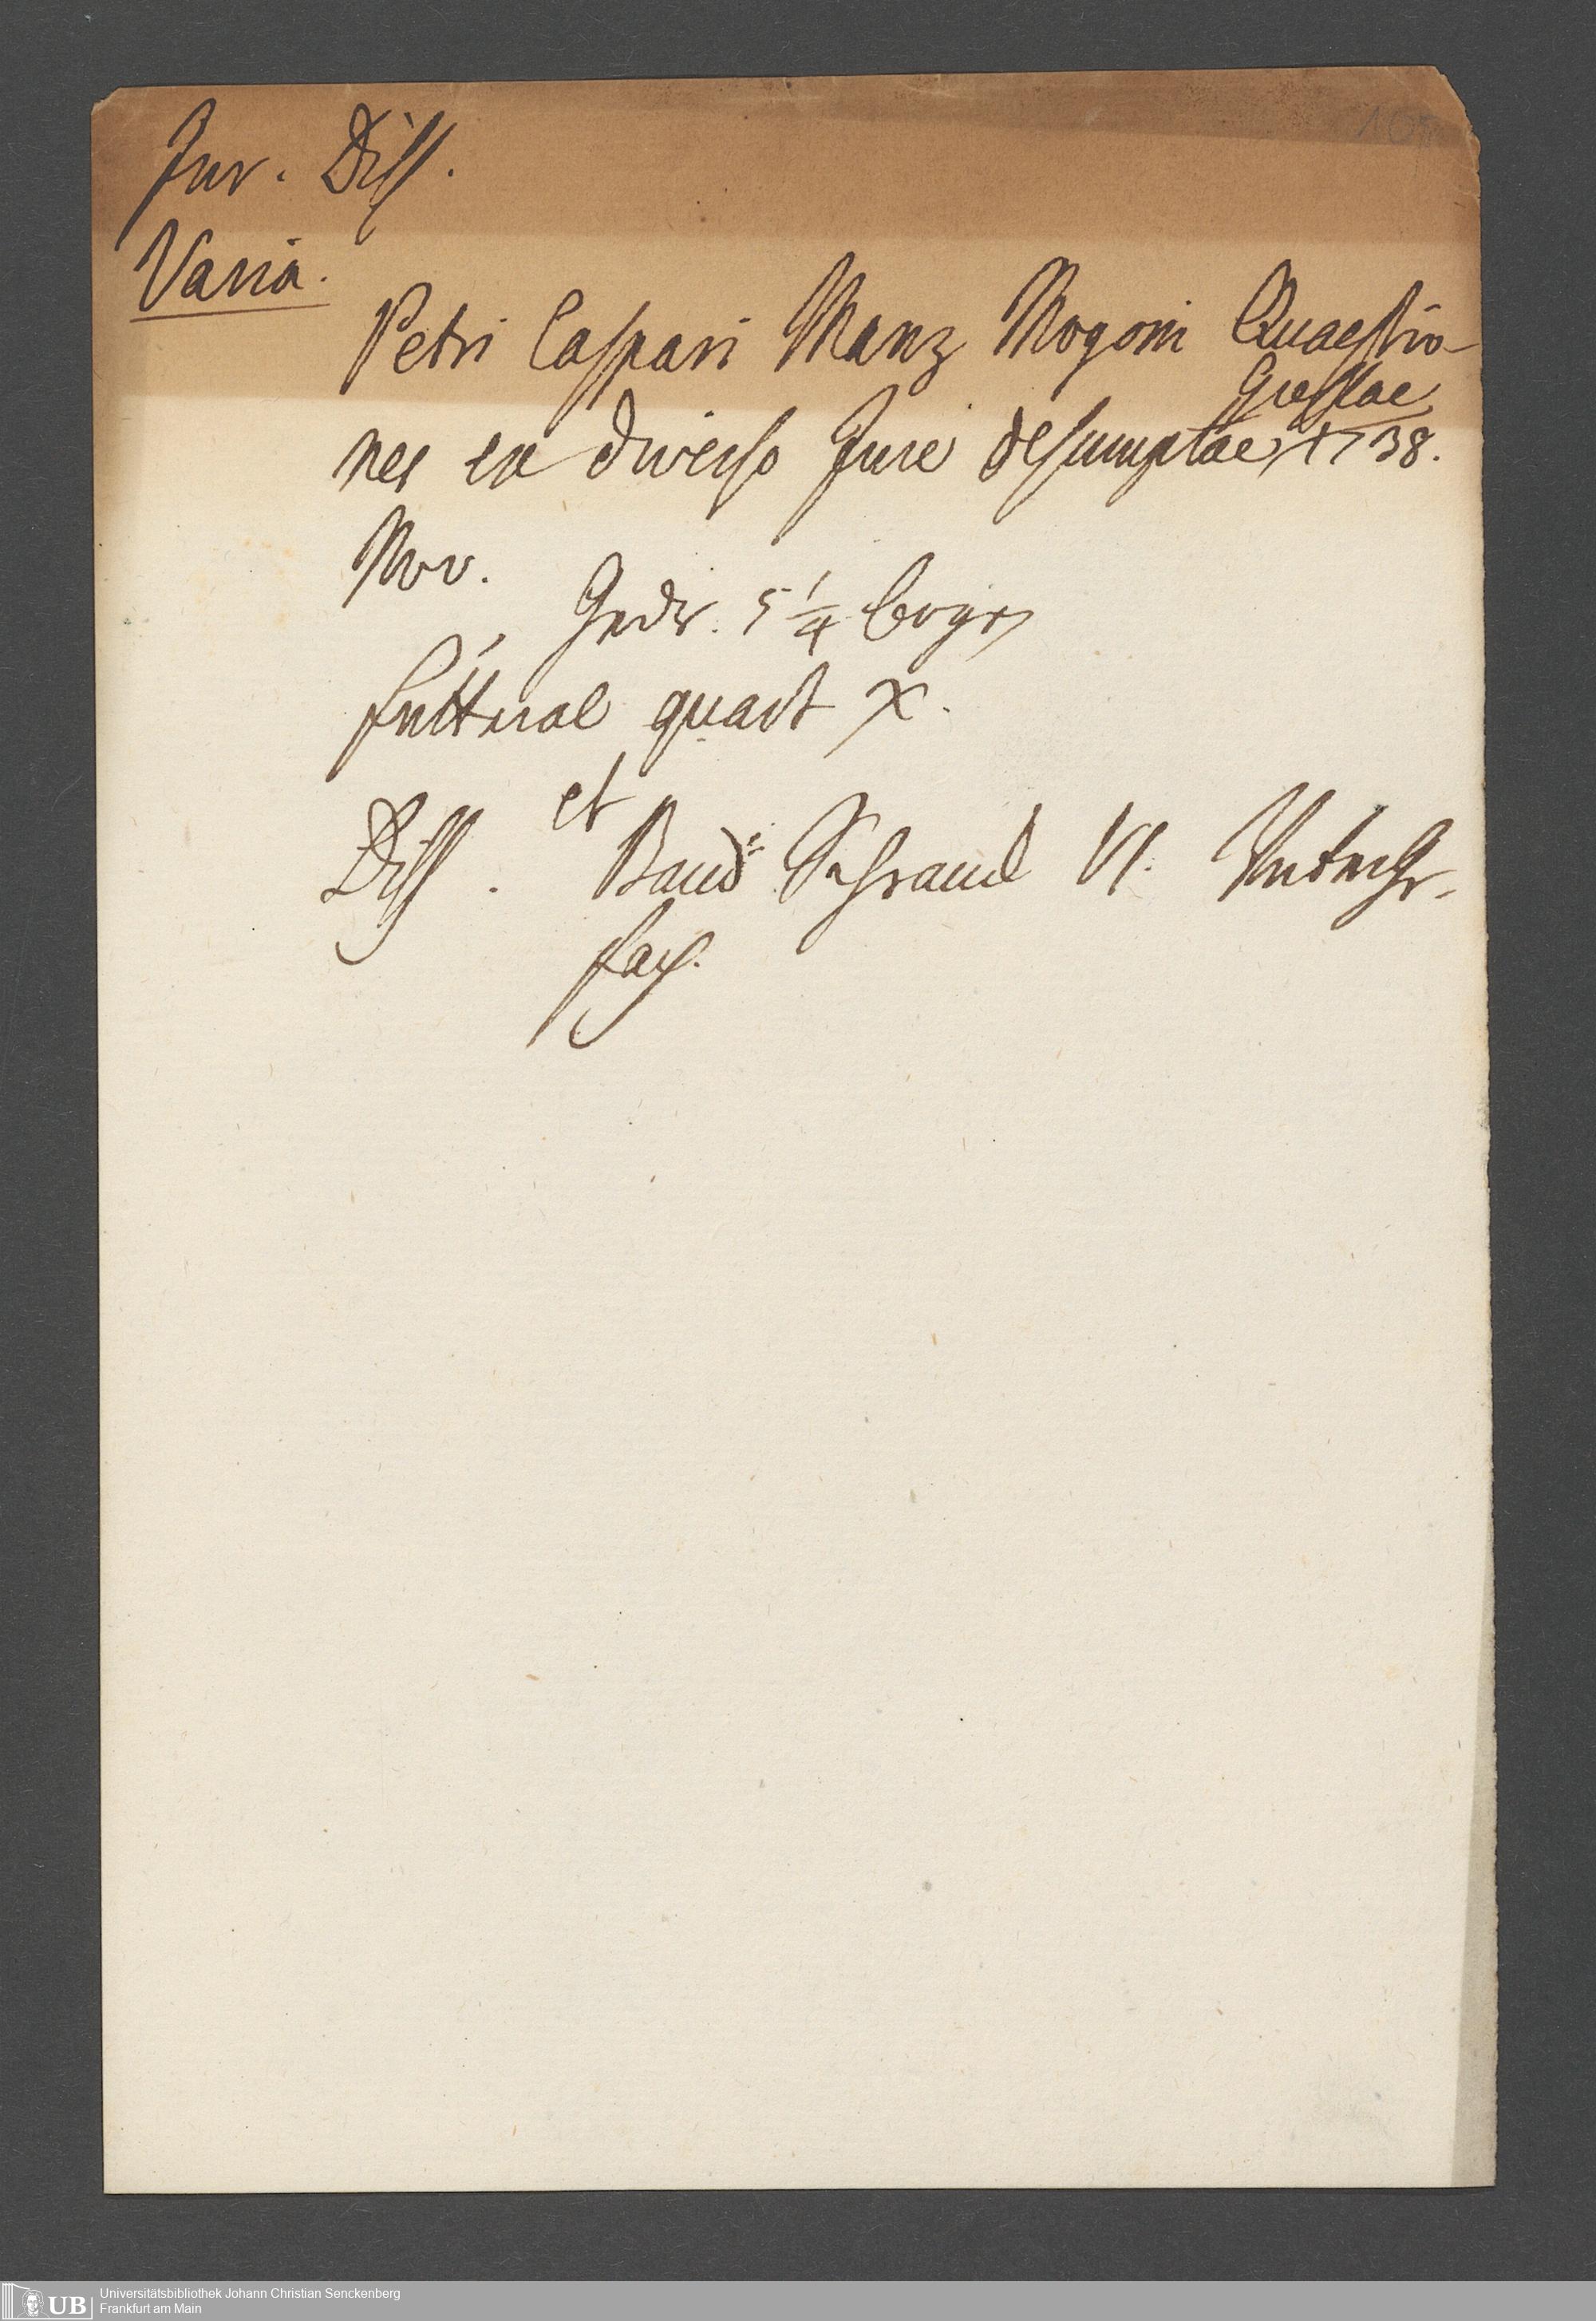 Jur. Diss.
Varia.
Petri Caspari Manz Mogoni Quaestio-
Giessae
nes ex diverso Jure desumptae, 1738.
Nov.
Gedr. 5 1/4 bogen
futteral quart X.
Diss. et Band: Schrank VI. Unterstr.
fach.
Universitätsbibliothek Johann Christian Senckenberg
Frankfurt am Main
UB